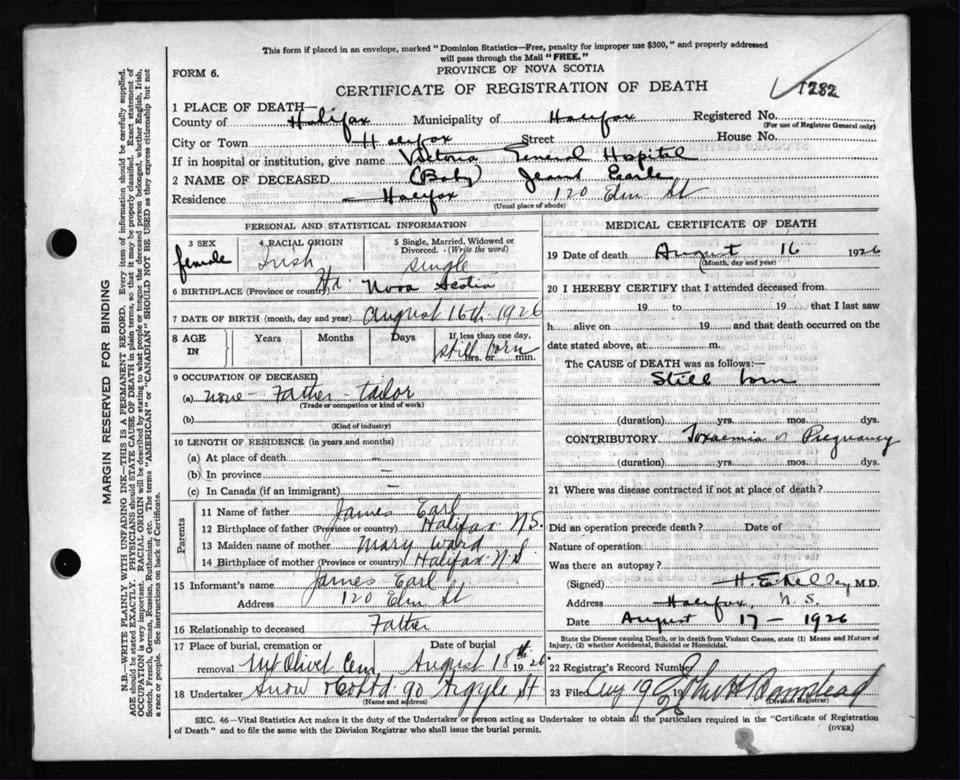 This form if placed in an envelope, marked "Dominion Statistics—Free, penalty for improper use $300," and properly addressed
will pass through the Mail "FREE."
PROVINCE OF NOVA SCOTIA
FORM 6.
CERTIFICATE OF REGISTRATION OF DEATH
1282
1 PLACE OF DEATH—
County of Halifax Municipality of Halifax Registered No.
(For use of Registrar General only)
City or Town Halifax Street House No.
If in hospital or institution, give name Victoria General Hospital
2 NAME OF DECEASED (Baby) Earle
Residence Halifax 120 Elm St
(Usual place of abode)
PERSONAL AND STATISTICAL INFORMATION
3 SEX 4 RACIAL ORIGIN 5 Single, Married, Widowed or Divorced. (Write the word)
female Irish single
6 BIRTHPLACE (Province or country) Nova Scotia
7 DATE OF BIRTH (month, day and year) August 16th 1926
8 AGE IN Years Months Days If less than one day,
still born hrs. or min.
9 OCCUPATION OF DECEASED
(a) none - Father - tailor
(Trade or occupation or kind of work)
(b)
(Kind of industry)
10 LENGTH OF RESIDENCE (in years and months)
(a) At place of death –
(b) In province –
(c) In Canada (if an immigrant) –
Parents
11 Name of father James Earl
12 Birthplace of father (Province or country) Halifax N.S.
13 Maiden name of mother Mary Ward
14 Birthplace of mother (Province or country) Halifax N.S
15 Informant's name James Earl
Address 120 Elm St
16 Relationship to deceased Father
17 Place of burial, cremation or removal Mt Olivet Cem
Date of burial August 18th 1926
18 Undertaker Snow & Co Ltd. 90 Argyle St
(Name and address)
MEDICAL CERTIFICATE OF DEATH
19 Date of death August 16 1926
(Month, day and year)
20 I HEREBY CERTIFY that I attended deceased from
19 to 19 that I last saw
h alive on 19 and that death occurred on the
date stated above, at m.
The CAUSE OF DEATH was as follows:
Still born
(duration) yrs. mos. dys.
CONTRIBUTORY Toxaemia of Pregnancy
(duration) yrs. mos. dys.
21 Where was disease contracted if not at place of death?
Did an operation precede death? Date of
Nature of operation
Was there an autopsy?
(Signed) M.D.
Address Halifax, N.S.
Date August 17 - 1926
State the Disease causing Death, or in death from Violent Causes, state (1) Means and Nature of
Injury, (2) whether Accidental, Suicidal or Homicidal.
22 Registrar's Record Number
23 Filed Aug 19 1926 John H Barnstead
(Division Registrar)
SEC. 46—Vital Statistics Act makes it the duty of the Undertaker or person acting as Undertaker to obtain all the particulars required in the "Certificate of Registration
of Death" and to file the same with the Division Registrar who shall issue the burial permit.
(OVER)
MARGIN RESERVED FOR BINDING
N.B.—WRITE PLAINLY WITH UNFADING INK—THIS IS A PERMANENT RECORD. Every item of information should be carefully supplied.
AGE should be stated EXACTLY. PHYSICIANS should STATE CAUSE OF DEATH in plain terms, so that it may be properly classified. Exact statement of
OCCUPATION is very important. RACIAL ORIGIN will be described by stating to what people or tongue the deceased person belonged, whether English, Irish,
Scotch, French, German, Russian, Ruthenian, etc. The terms "AMERICAN" or "CANADIAN" SHOULD NOT BE USED as they express citizenship but not
a race or people. See instructions on back of Certificate.